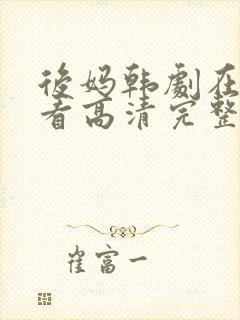 後妈韩劇在
看高清完整
崔富一